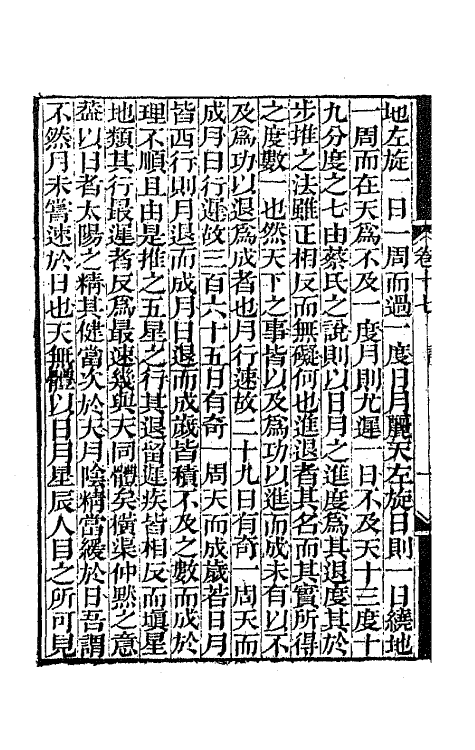 卷十七
地左旋一日一周而過一度日月麗天左旋日則一日繞地
一周而在天爲不及一度月則尤遲一日不及天十三度十
九分度之七由蔡氏之說則以日月之進度爲其退度其於
步推之法雖正相反而無礙何也進退者其名而其實所得
之度數一也然天下之事皆以及爲功以進而成未有以不
及爲功以退爲成者也月行速故二十九日有奇一周天而
成月日行遲故三百六十五日有奇一周天而成歲若日月
皆西行則月退而成月日退而成歲皆積不及之數而成於
理不順且由是推之五星之行其退留遲疾皆相反而塡星
地類其行最遲者反爲最速幾與天同體矣橫渠仲默之意
葢以日者太陽之精其健當次於天月陰精當緩於日吾謂
不然月未嘗速於日也天無體以日月星辰人目之所可見